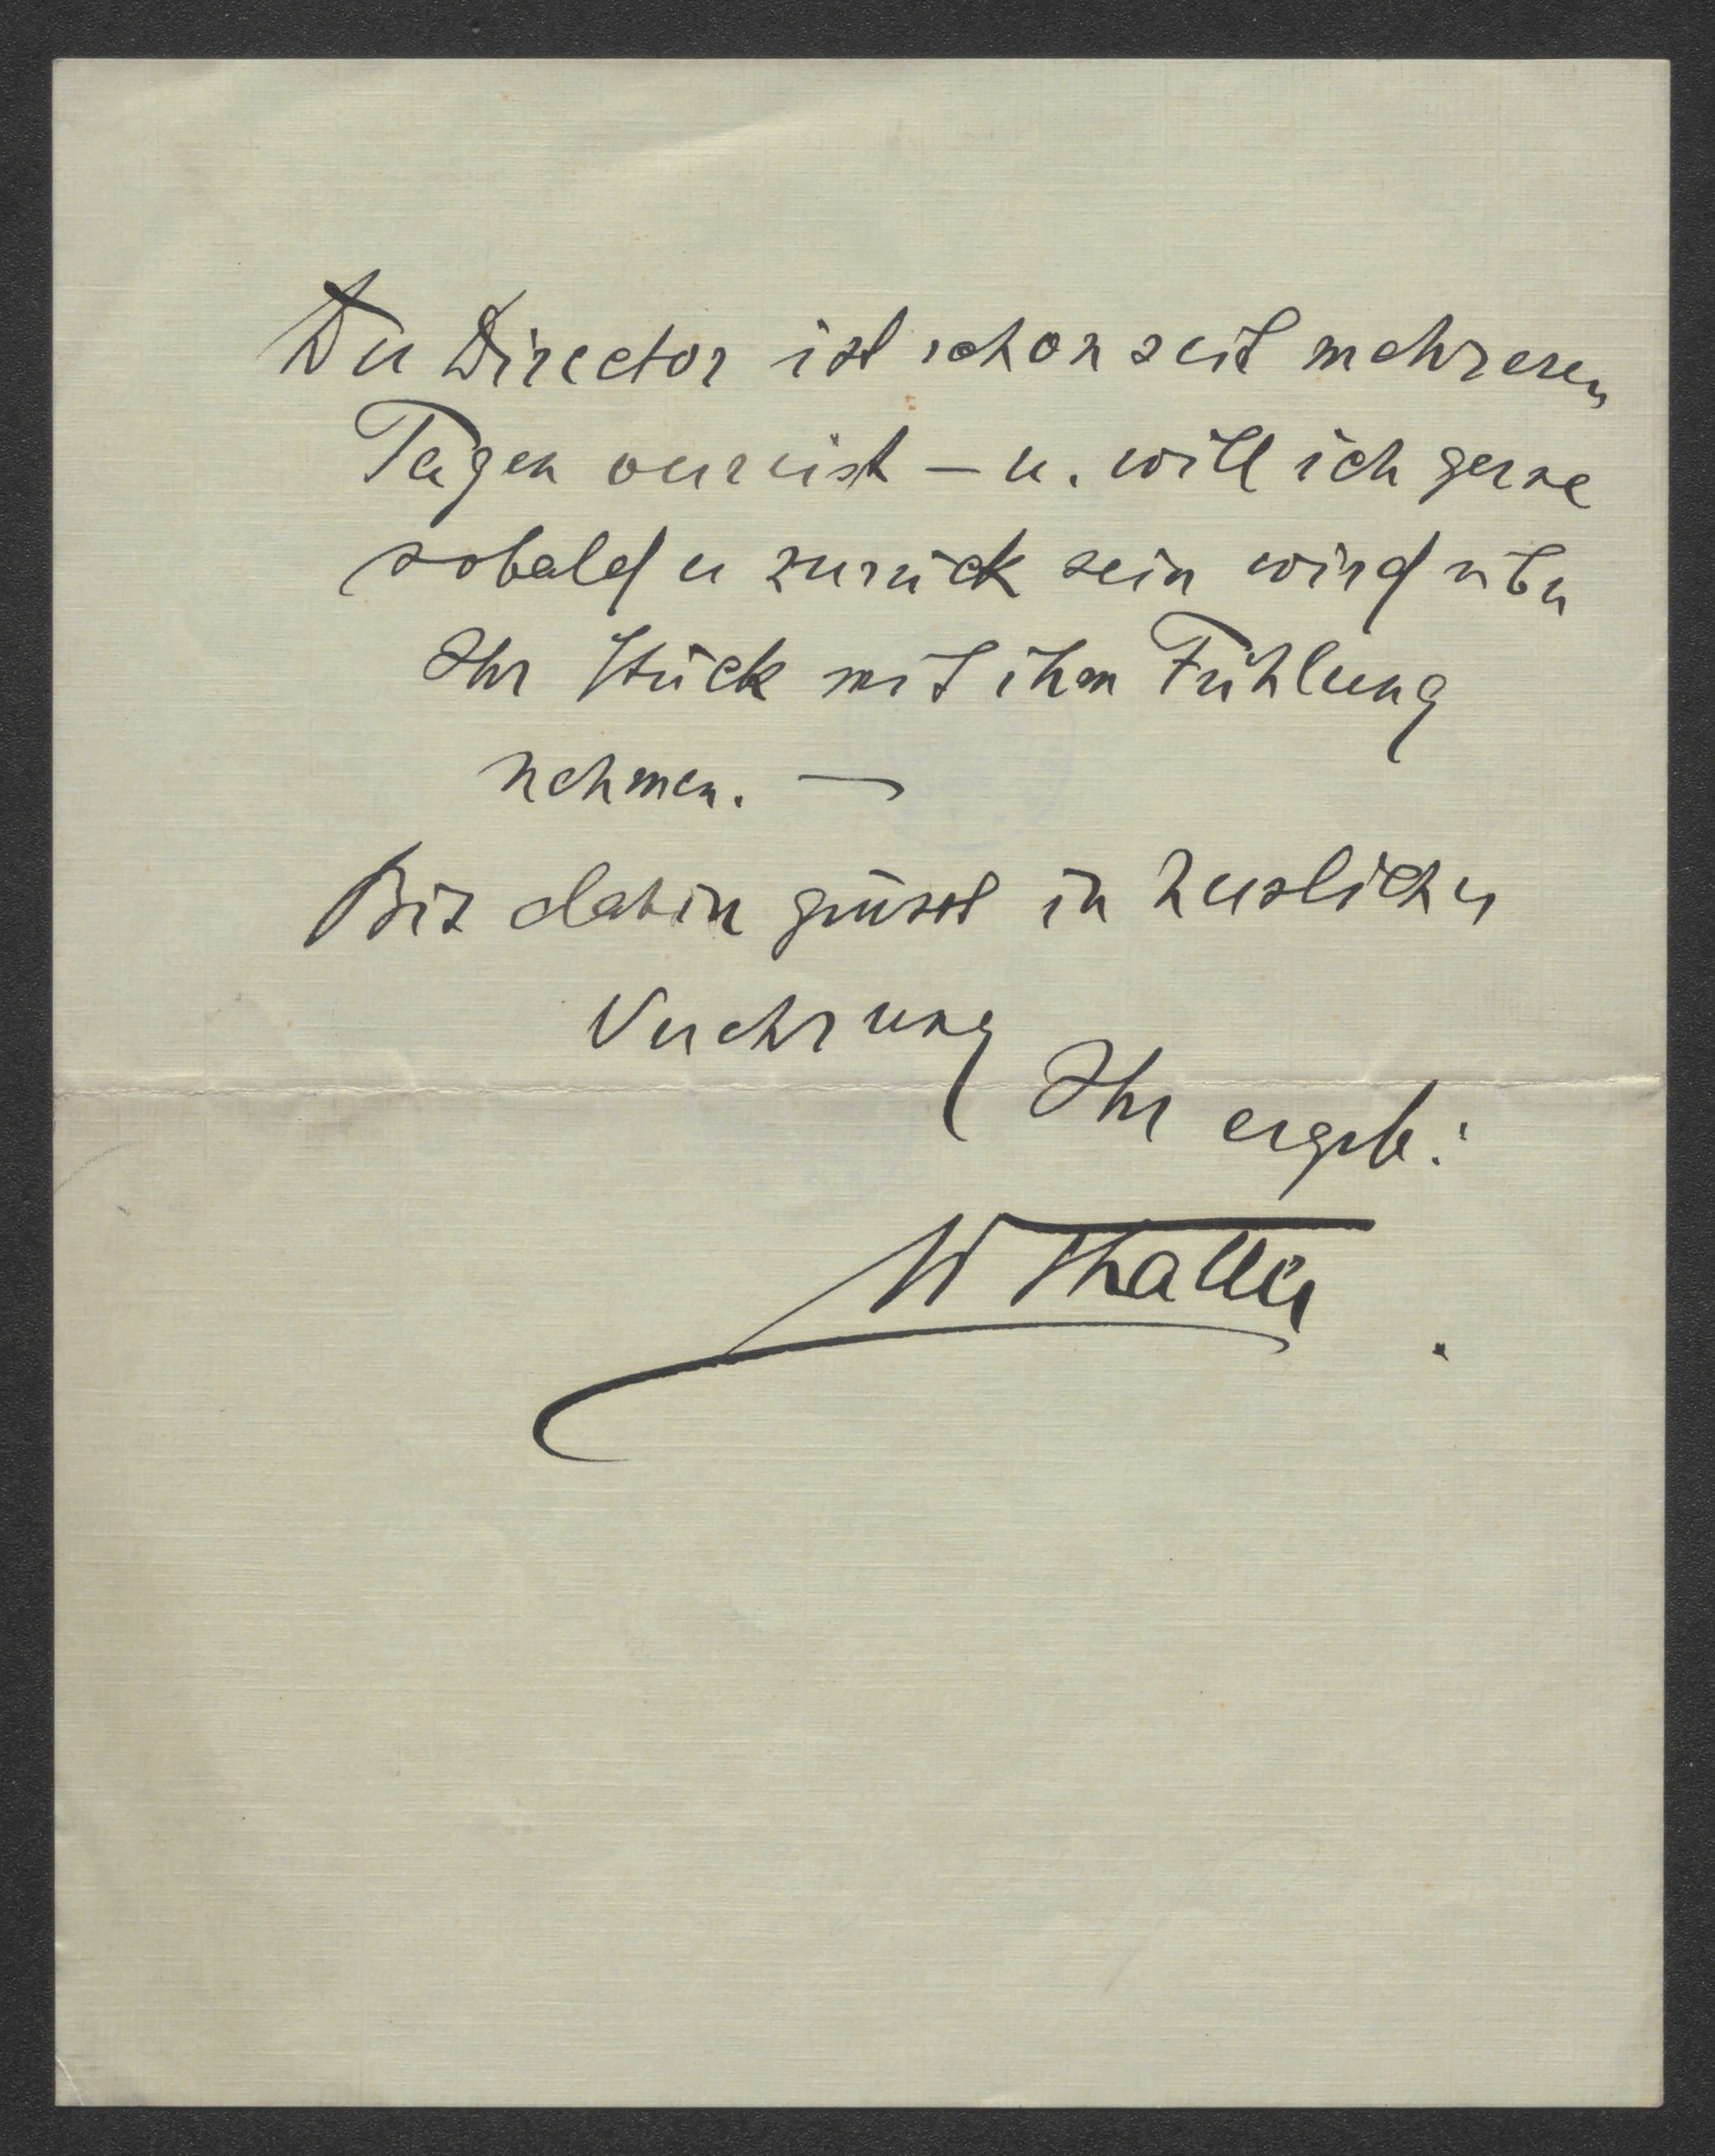 Der Director ist schon seit mehreren
Tagen verreist – u. will ich gerne
sobald er zurück sein wird über
Ihr Stück mit ihm Fühlung
nehmen. —
Bis dahin grüsst in herzlicher
Verehrung
Ihr ergeb:
W Thaller